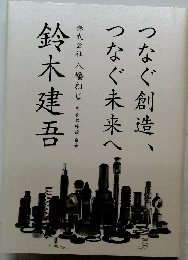 つなぐ創造、
つなぐ未来へ
株式会社 八幡ねじ
鈴木建吾